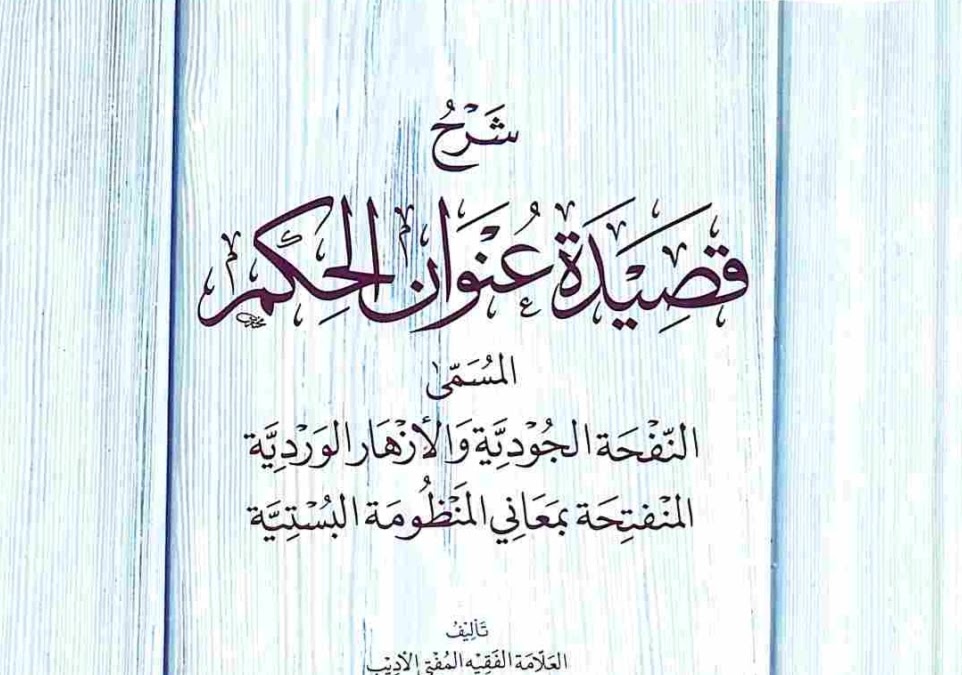 شَرْحُ
قَصِيْدَة عُنْوَان الحِكَم
المُسَمّى
النّفْحَة الجُوْدِيَّة وَالأَزْهَار الوَرْدِيَّة
المُنْفتِحَة بمَعَاني المَنْظُومَة البُسْتِيَّة
تَأليْفُ
العَلّامَة الفَقِيْه المُفْتي الأَدِيْب